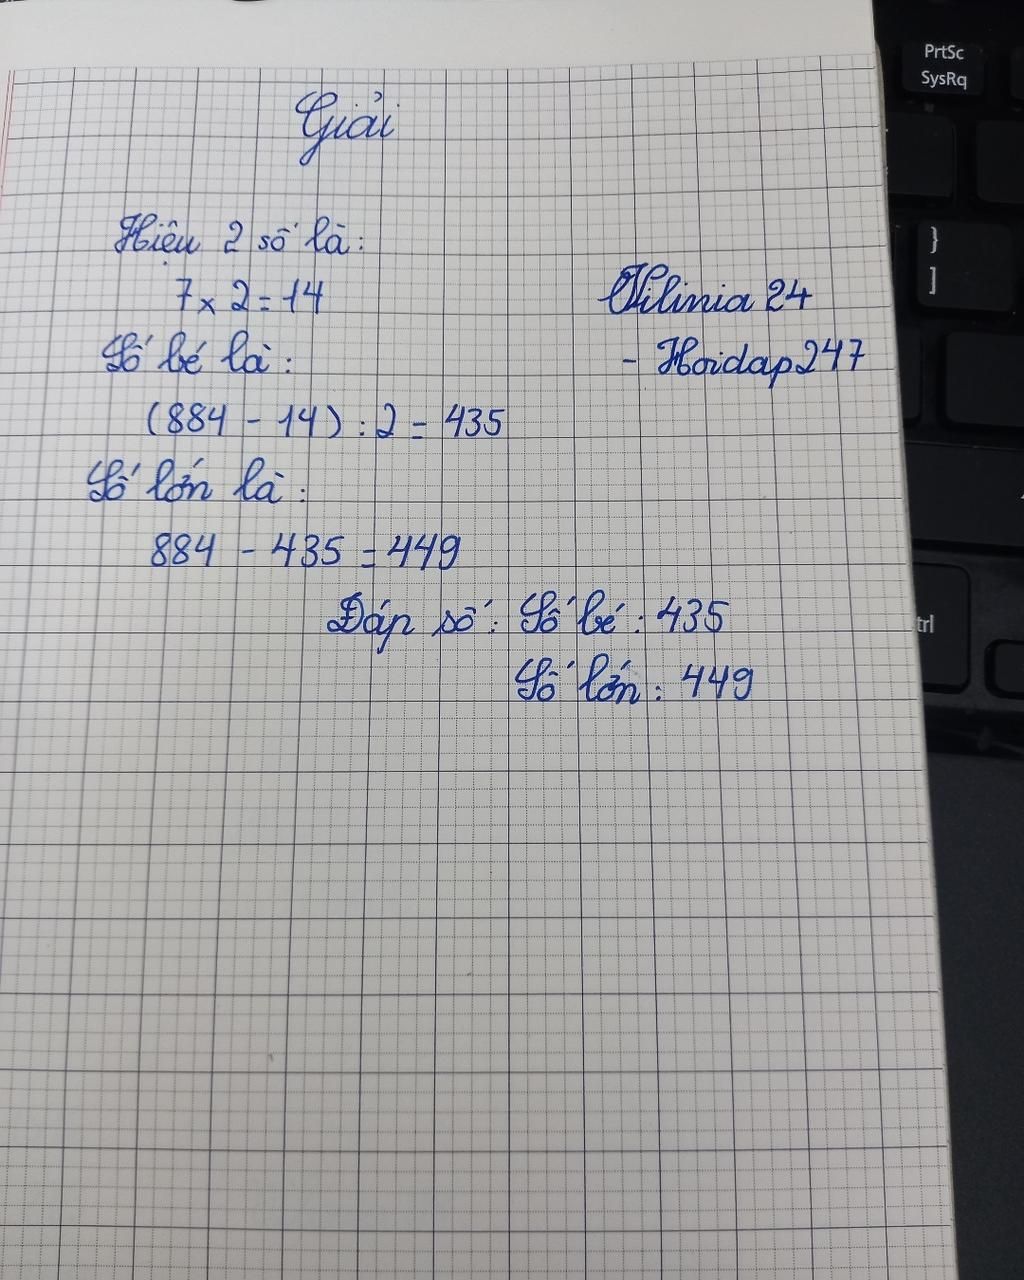 Giải
Hiệu 2 số là:
7 x 2 = 14
Số bé là:
(884 - 14) : 2 = 435
Số lớn là:
884 - 435 = 449
Đáp số: Số bé: 435
Số lớn: 449
Vilinia 24
- Hoidap247
PrtSc
SysRq
}
]
trl